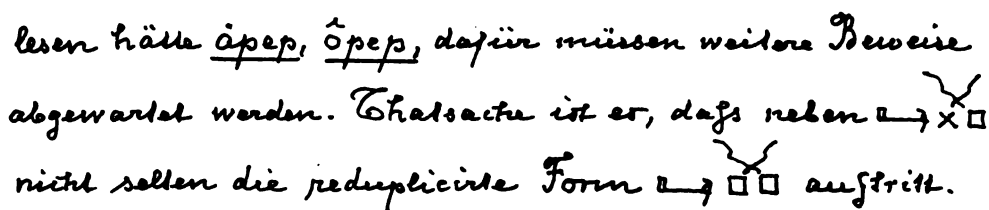 lesen hätte ȧpep, ôpep, dafür müssen weitere Beweise
abgewartet werden. Thatsache ist es, daſs neben
nicht selten die reduplicirte Form auftritt.